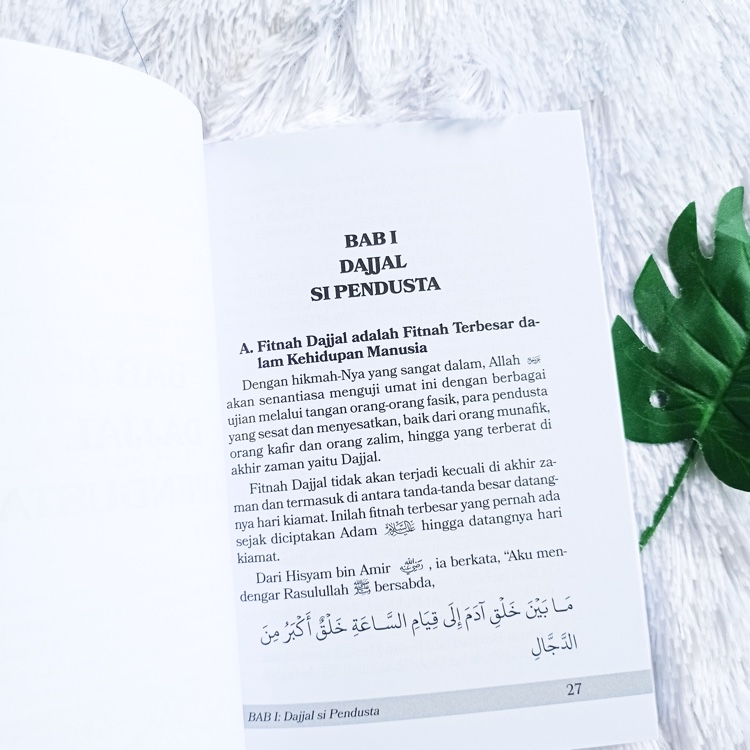 BAB I
DAJJAL
SI PENDUSTA
A. Fitnah Dajjal adalah Fitnah Terbesar da-
lam Kehidupan Manusia
Dengan hikmah-Nya yang sangat dalam, Allah
akan senantiasa menguji umat ini dengan berbagai
ujian melalui tangan orang-orang fasik, para pendusta
yang sesat dan menyesatkan, baik dari orang munafik,
orang kafir dan orang zalim, hingga yang terberat di
akhir zaman yaitu Dajjal.
Fitnah Dajjal tidak akan terjadi kecuali di akhir za-
man dan termasuk di antara tanda-tanda besar datang-
nya hari kiamat. Inilah fitnah terbesar yang pernah ada
sejak diciptakan Adam hingga datangnya hari
kiamat.
Dari Hisyam bin Amir , ia berkata, “Aku men-
dengar Rasulullah ﷺ bersabda,
مَا بَيْنَ خَلْقِ آدَمَ إِلَى قِيَامِ السَّاعَةِ خَلْقٌ أَكْبَرُ مِنَ
الدَّجَّالِ
BAB I: Dajjal si Pendusta
27